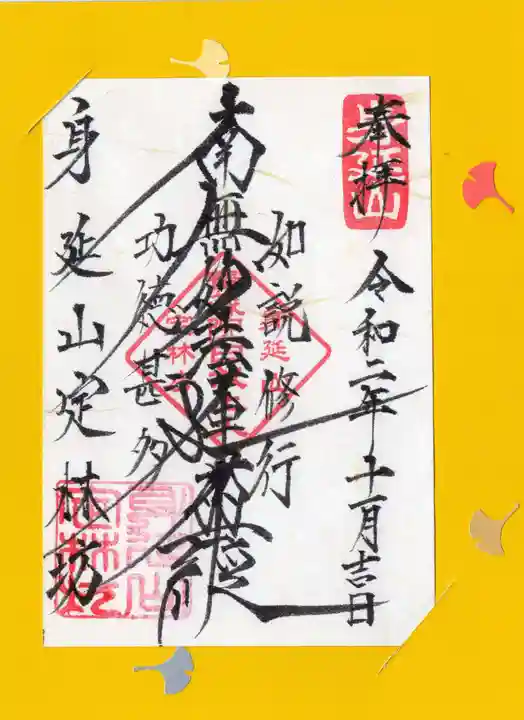 奉拝
令和二年十一月吉日
如説修行
南無妙法蓮華経
功徳甚多
身延山定林坊
身延山